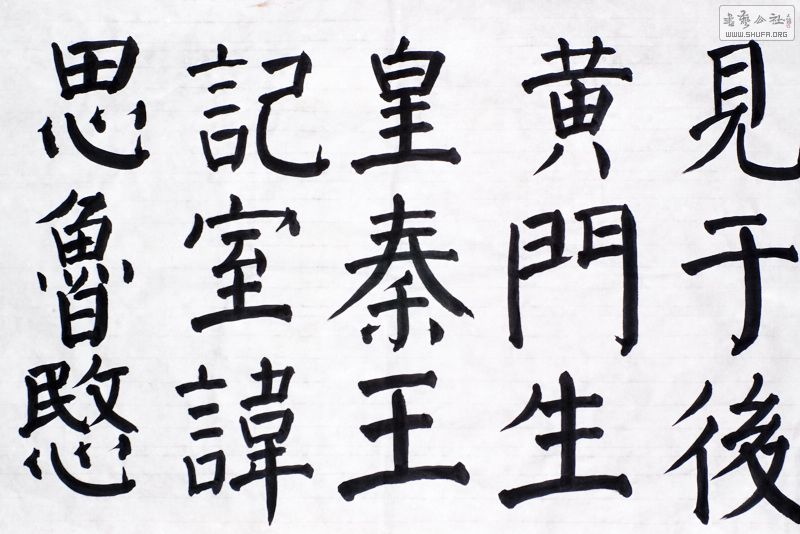 見于後
黄門生
皇秦王
記室諱
思魯愍
書藝公社
WWW.SHUFA.ORG